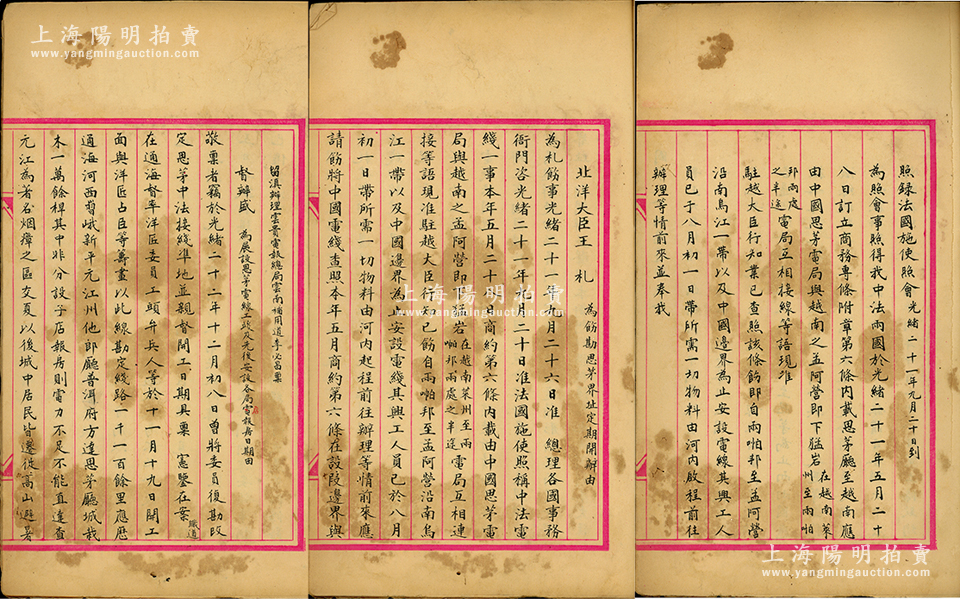 照錄法國施使照會 光緒二十一年九月二十日到
為照會事照得我中法兩國於光緒二十一年五月二十
八日訂立商務專條附章第六條內載思茅廳至越南應
由中國思茅電局與越南之孟阿營即下猛岩 在越南萊州至兩怕
邦兩處之半途 電局互相接線等語現准
駐越大臣行知業已查照該條飭即自兩怕邦至孟阿營
沿南烏江一帶以及中國邊界為止安設電線其與工人
員已于八月初一日帶所需一切物料由河內啟程前往
辦理等情前來並奉我
北洋大臣王 札 為飭勘思茅界址定期開辦由
為札飭事光緒二十一年九月二十六日准 總理各國事務
衙門咨光緒二十一年九月二十日准法國施使照稱中法電
綫一事本年五月二十八日商約第六條內載由中國思茅電
局與越南之孟阿營即下猛岩 在越南萊州至兩怕邦兩處之半途 電局互相連
接等語現准駐越大臣行知已飭自兩怕邦至孟阿營沿南烏
江一帶以及中國邊界為止安設電綫其與工人員已於八月
初一日帶所需一切物料由河內起程前往辦理等情前來應
請飭將中國電綫查照本年五月商約第六條在設陸邊界與
留滇辦理雲貴電報總局雲南補用道李必昌稟
督辦盛 為展設思茅電線工竣及先後安設各局電報房日期由
敬稟者竊於光緒二十二年十二月初八日曾將委員復勘改
定思茅中法接綫準地並親督開工日期具稟 憲鑒在案 職道
在通海督率洋匠委員工頭弁兵人等於十一月十九日開工
面與洋匠占臣等籌畫以此線勘定綫路一千一百餘里應歷
通海河西嶍峨新平元江州他郎廳普洱府方達思茅廳城栽
木一萬餘桿其中非分設子店報房則電力不足不能直達查
元江為著名烟瘴之區交夏以後城中居民皆遷徙高山避暑
上海陽明拍賣
www.yangmingauction.com
上海陽明拍賣
www.yangmingauction.com
上海陽明拍賣
www.yangmingauction.com